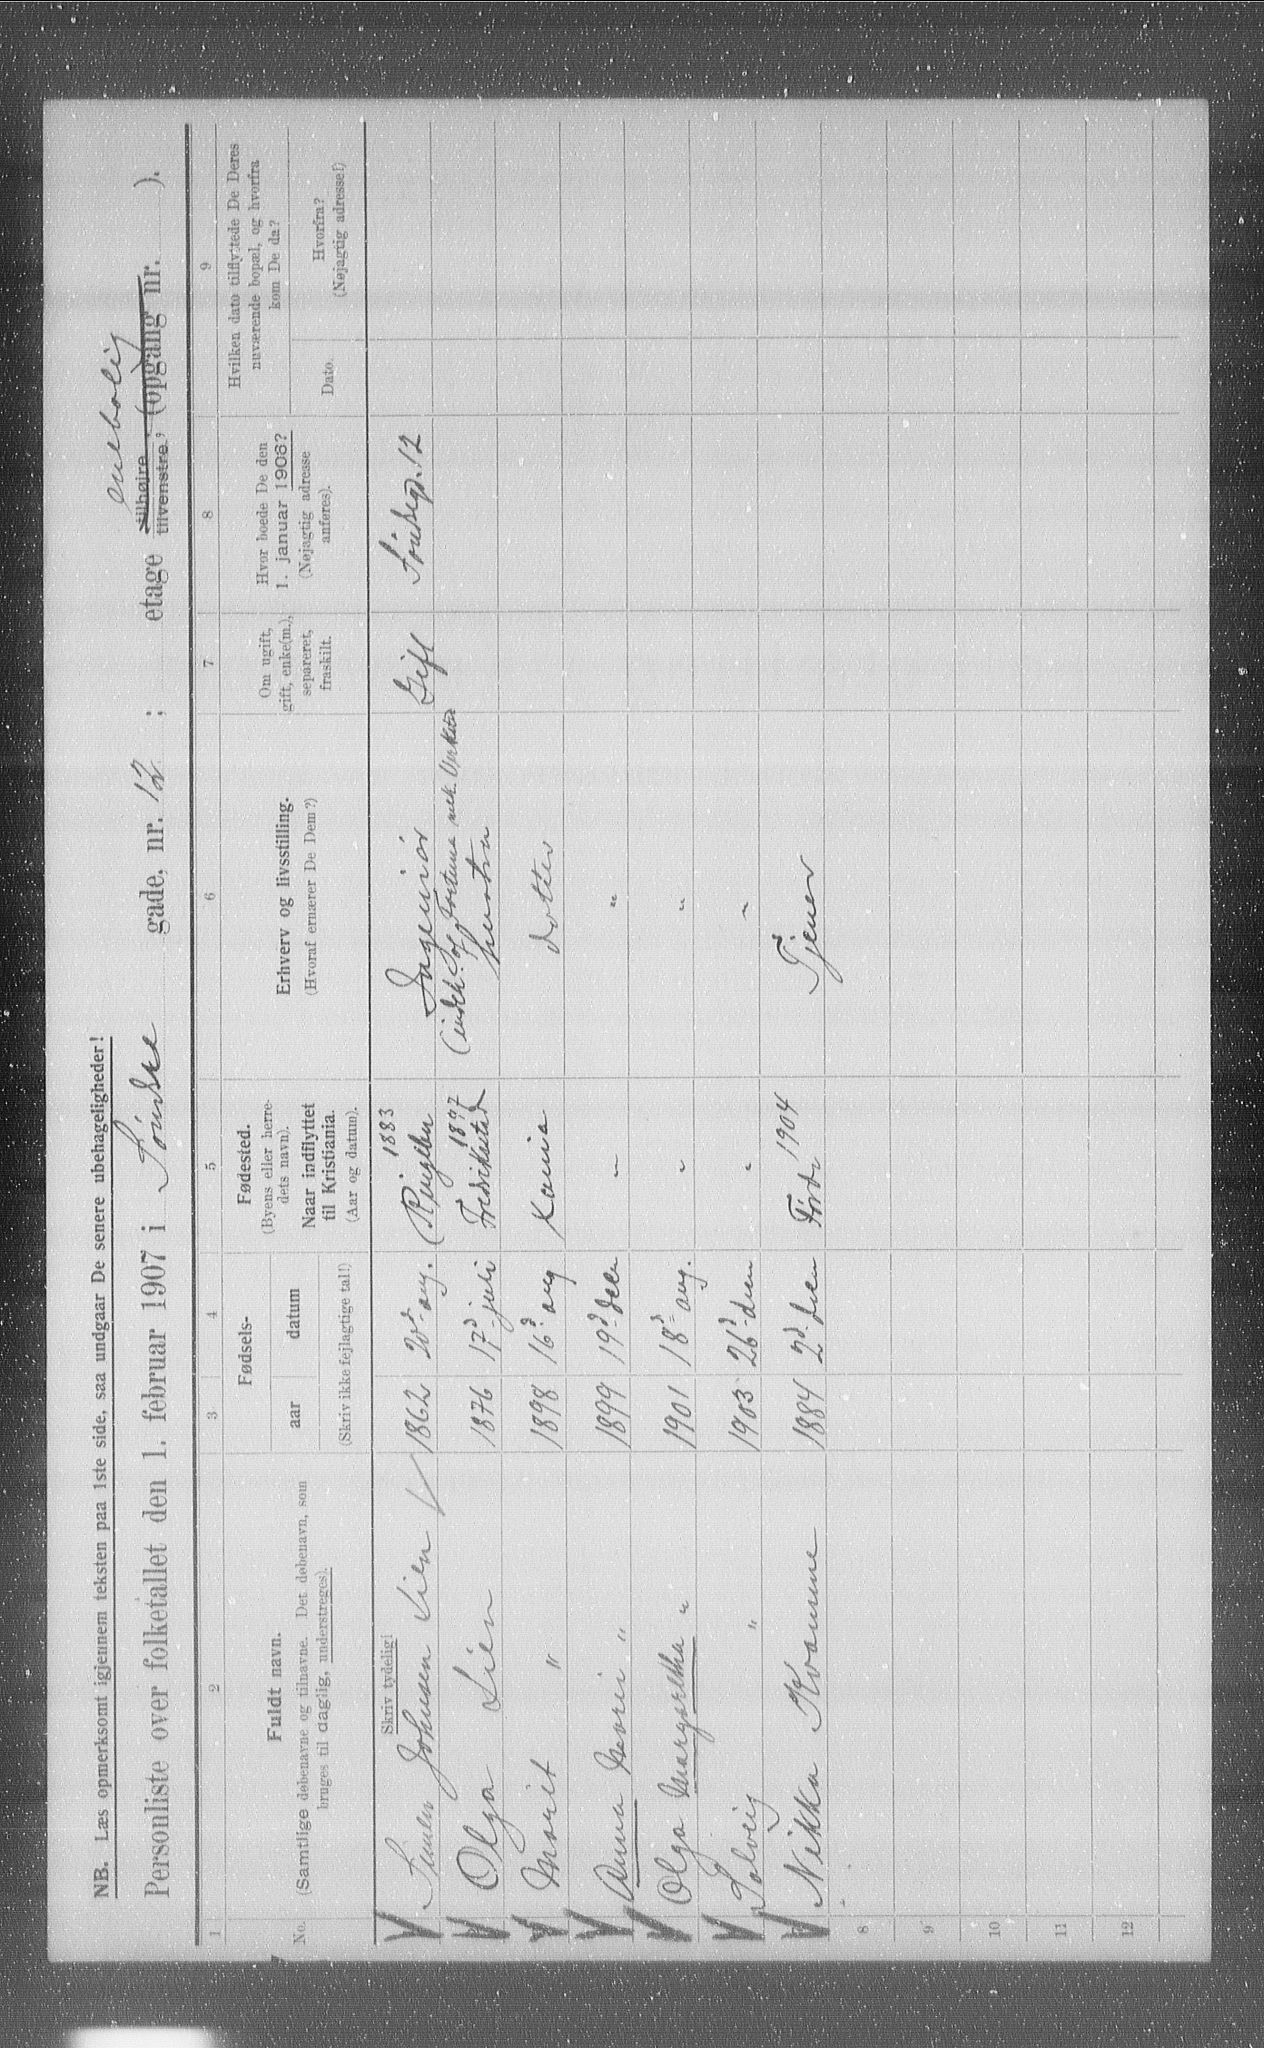 NB. Læs opmerksomt igjennem teksten paa 1ste side, saa undgaar De senere ubehageligheder!
Personliste over folketallet den 1. februar 1907 i gade, nr. 12 ; etage tilhøire tilvenstre, (opgang nr. ).
enebolig
1 2 3 4 5 6 7 8 9
No. Fuldt navn.
(Samtlige døbenavne og tilnavne. Det døbenavn, som
bruges til daglig, understreges).
Skriv tydelig!
Fødsels-
aar datum
(Skriv ikke fejlagtige tal!)
Fødested.
(Byens eller herre-
dets navn).
Naar indflyttet
til Kristiania.
(Aar og datum).
Erhverv og livsstilling.
(Hvoraf ernærer De Dem?)
Om ugift,
gift, enke(m.),
separeret,
fraskilt.
Hvor boede De den
1. januar 1906?
(Nøjagtig adresse
anføres).
Hvilken dato tilflyttede De Deres
nuværende bopæl, og hvorfra
kom De da?
Dato. Hvorfra?
(Nøjagtig adresse!)
Johnsen Lien 1862 20d aug. Ringebu 1883 Ingeniør Gift 12
Olga Lien 1876 17d juli Fredrikstad 1897 hustru
Marit " 1898 16d aug Kania datter
Anna Marie " 1899 19d decbr " "
Olga Margaretha " 1901 18d aug. " "
Solveig " 1903 26d " "
Nikka Kvamme 1884 2d Førde 1904 Tjener
8
9
10
11
12